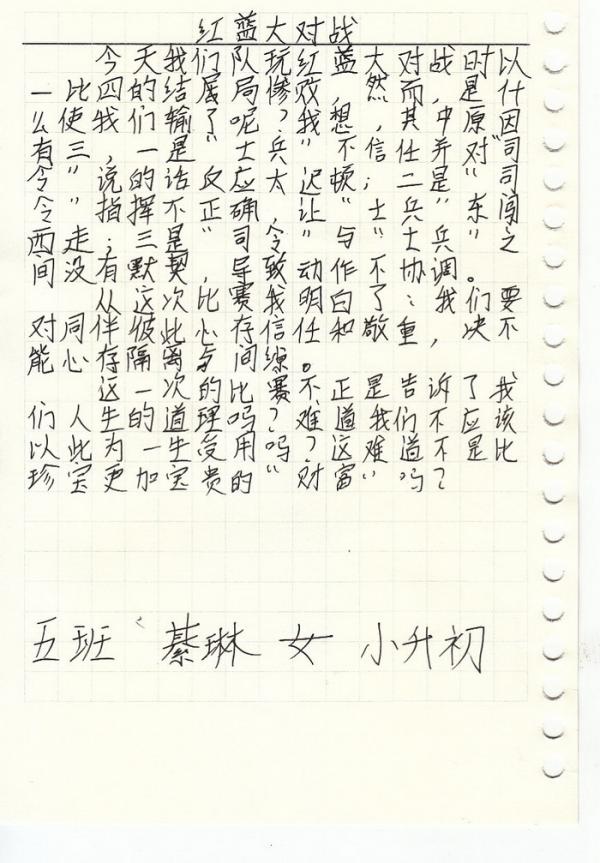 红蓝大对战
今天我们队玩红蓝大对战,时以
一比四的结局惨败,然而,是什
么使我们输了呢?我想,其中原因
有三:一是"士兵"不信任"司
令"的话,反应太迟顿;二是对"司
令"指挥不正确,令让"士兵"东闯
西走;三是"司令"与"士兵"之
间没有默契,导致动作不协调。
从这次比赛我明白了:我们要
对同伴彼此心存信任和敬重,决不
能心存隔离与间
这一次比赛,不正是告诉了我
们人生的道理吗?难道我们不应该
以此为一生受用吗?这难道不是比
珍宝更加宝贵的"财富"吗?
五班 綦琳 女 小升初